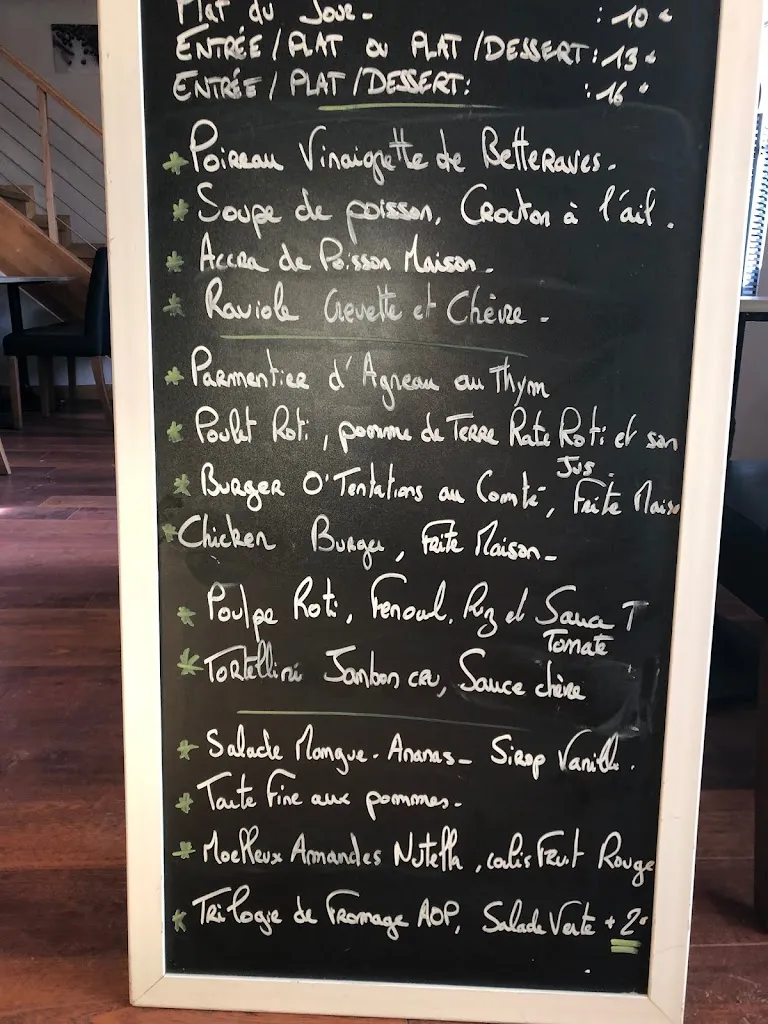 Plat du Jour - : 10 €
ENTRÉE / PLAT OU PLAT / DESSERT : 13 €
ENTRÉE / PLAT / DESSERT : : 16 €
* Poireau Vinaigrette de Betteraves -
* Soupe de poisson, Crouton à l'ail .
* Accra de Poisson Maison -
* Raviole Crevette et Chèvre -
* Parmentier d'Agneau au Thym
* Poulet Roti, pomme de Terre Rate Roti et son
Jus .
* Burger O'Tentations au Comté, Frite Maiso
* Chicken Burger, Frite Maison -
* Poulpe Roti, Fenouil, Riz et Sauce T
Tomate
* Tortellini Jambon cru, Sauce chèvre
* Salade Mangue - Ananas - Sirop Vanille .
* Tarte Fine aux pommes -
* Moelleux Amandes Nutella, coulis Fruit Rouge
* Trilogie de Fromage AOP, Salade Verte + 2€